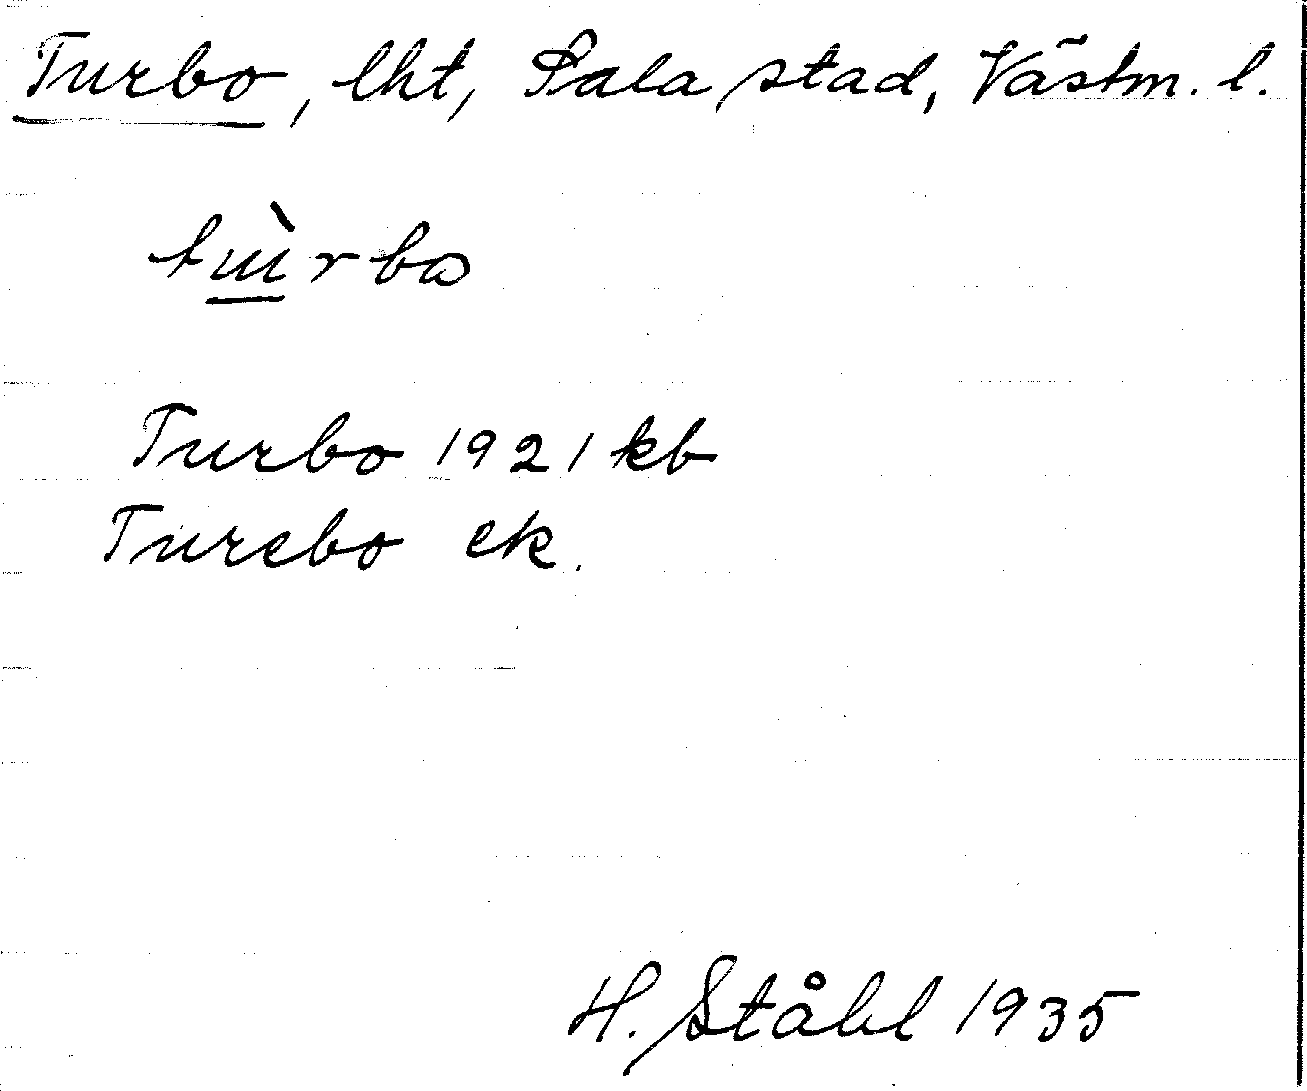 Turbo, lht, Sala stad, Västm. l.
tùrbo
Turbo 1921 kb
Turebo ek.
H. Ståhl 1935